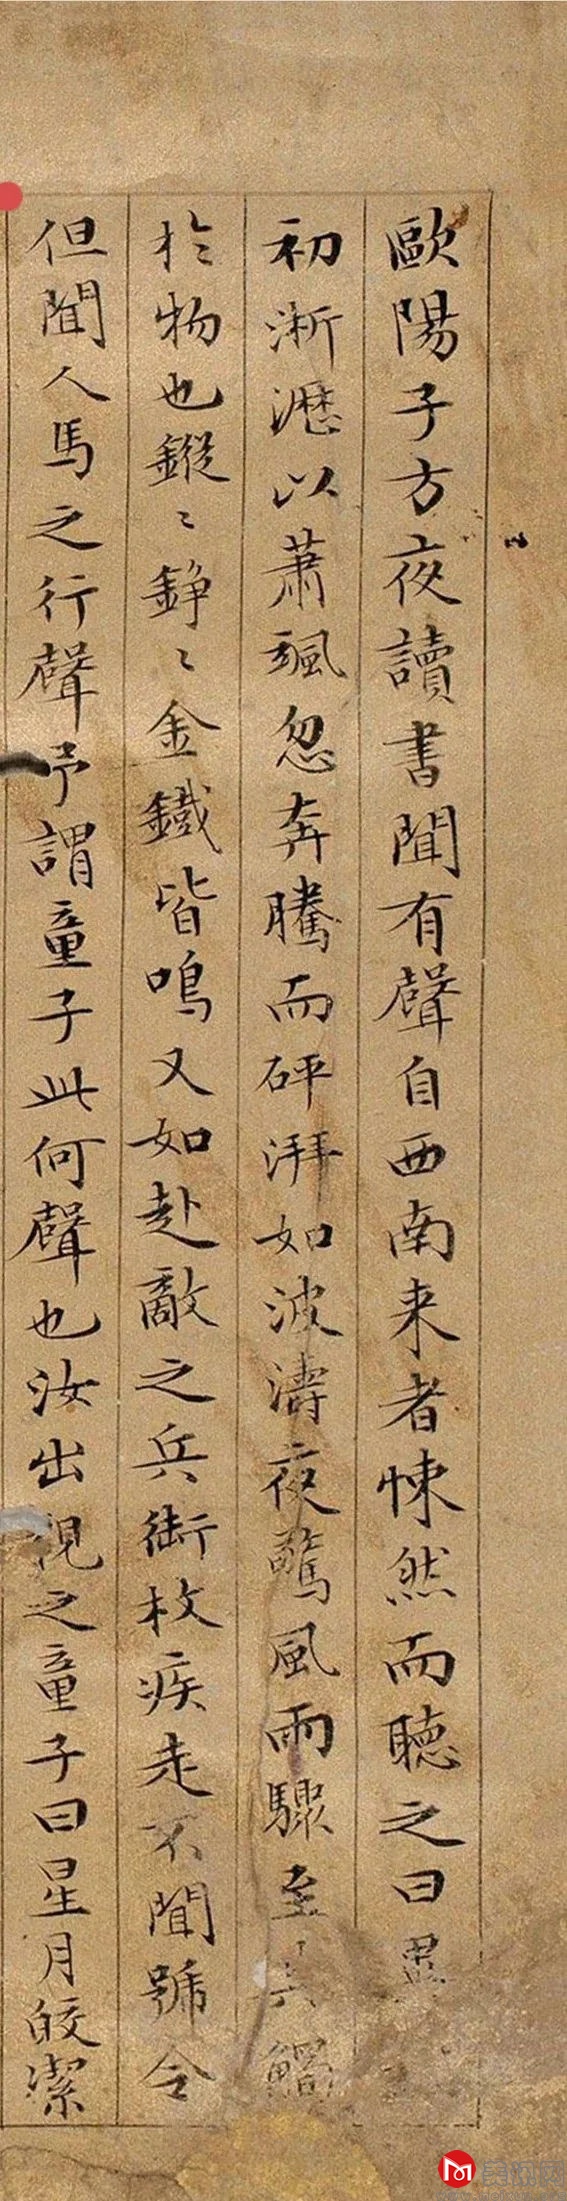 歐陽子方夜讀書聞有聲自西南来者悚然而聽之曰異
初淅瀝以蕭颯忽奔騰而砰湃如波濤夜驚風雨驟至其觸
於物也鏦〻錚〻金鐵皆鳴又如赴敵之兵銜枚疾走不聞號令
但聞人馬之行聲予謂童子此何聲也汝出視之童子曰星月皎潔
美讯网